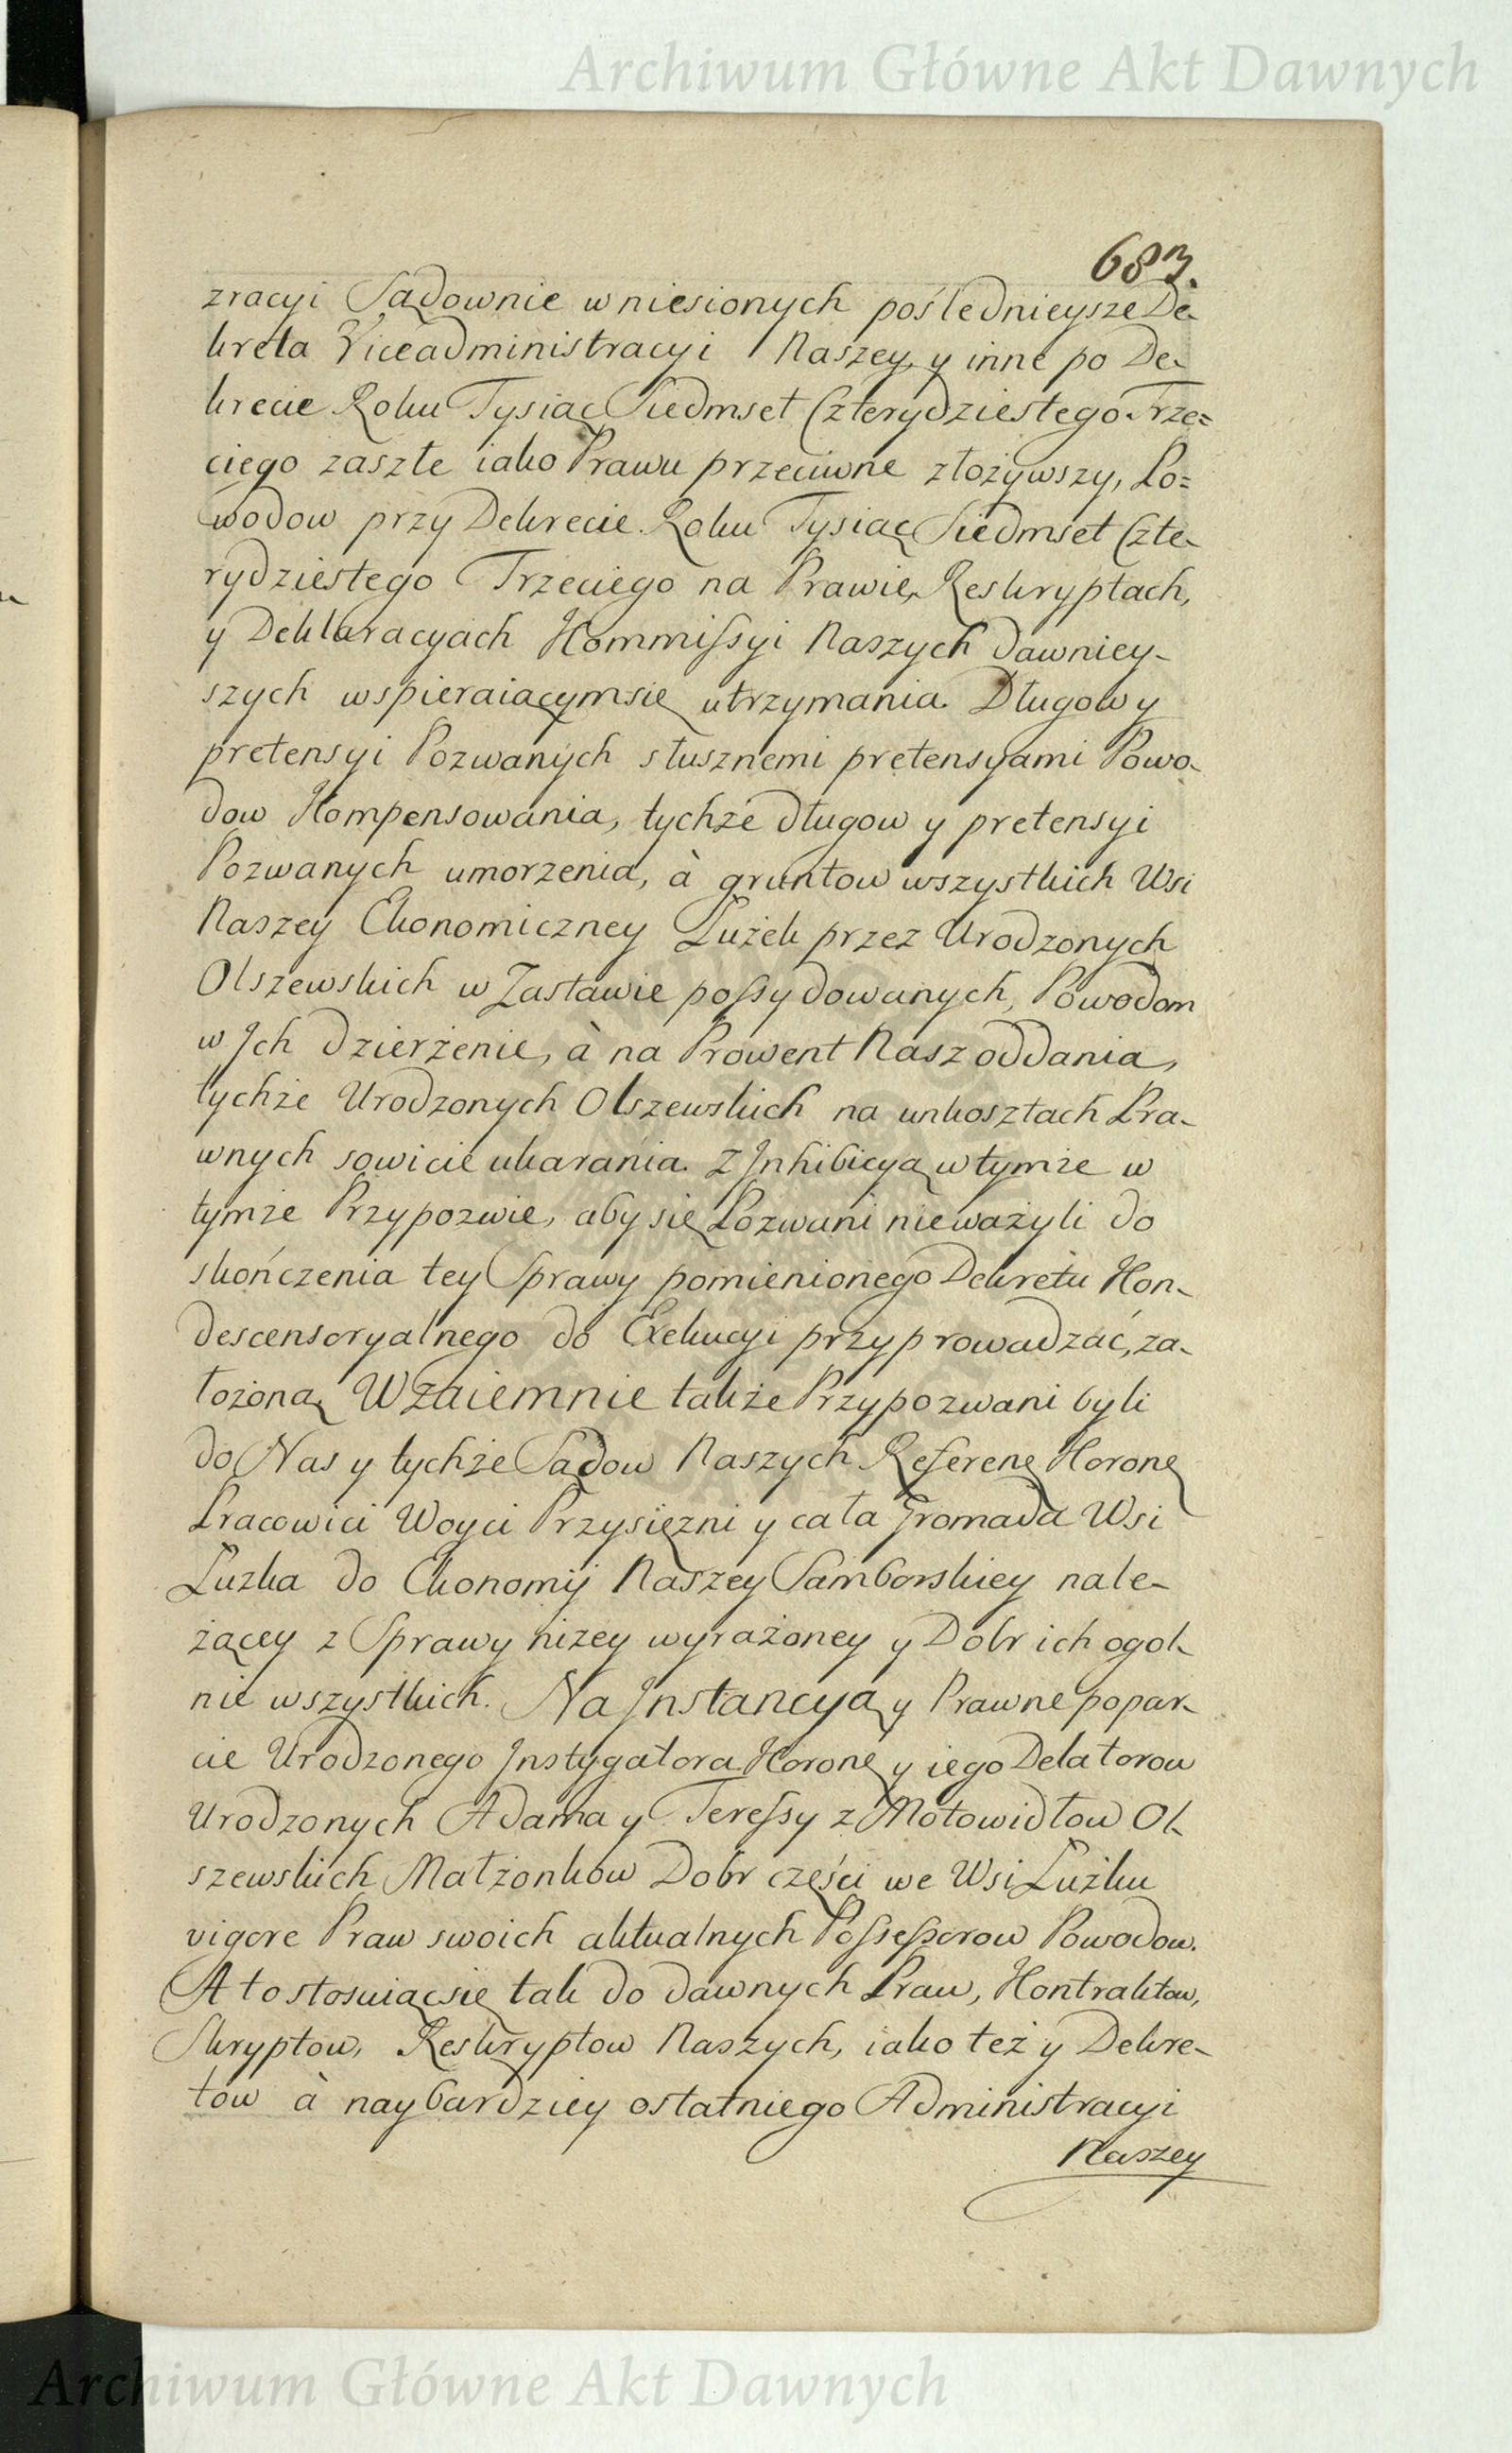 Archiwum Główne Akt Dawnych
683.
zracyi Sądownie wniesionych posłednieysze De-
kreta Viceadministracyi Naszey, y inne po De-
krecie Roku Tysiąc Siedmset Czterydziestego Trze=
ciego zaszłe iako Prawu przeciwne złożywszy, Po=
wodow przy Dekrecie Roku Tysiąc Siedmset Czte-
rydziestego Trzeciego na Prawie, Reskryptach,
y Deklaracyach Kommissyi Naszych dawniey-
szych wspieraiącymsię utrzymania. Długow y
pretensyi Pozwanych słusznemi pretensyami Powo-
dow Kompensowania, tychże długow y pretensyi
Pozwanych umorzenia, à gruntow wszystkich Wsi
Naszey Ekonomiczney Łużek przez Urodzonych
Olszewskich w Zastawie possydowanych, Powodom
w Jch dzierżenie, à na Prowent Nasz oddania,
tychże Urodzonych Olszewskich na unkosztach Pra-
wnych sowicie ukarania. Z Jnhibicyą w tymże w
tymże Przypozwie, aby się Pozwani nieważyli do
skończenia tey Sprawy pomienionego Dekretu Kon-
descensoryalnego do Exekucyi przyprowadzać, za-
łożoną. Wzaiemnie także Przypozwani byli
do Nas y tychże Sądow Naszych Referenę Koronę
Pracowici Woyci Przysięzni y cała Gromada Wsi
Łuzka do Ekonomij Naszey Samborskiey nale-
żącey z Sprawy niżey wyrażoney y Dobr ich ogol-
nie wszystkich. Na Jnstancyą y Prawne popar-
cie Urodzonego Jnstygatora Koronę y iego Delatorow
Urodzonych Adama y Teressy z Motowidłow Ol-
szewskich Małżonkow Dobr części we Wsi Łużku
vigore Praw swoich aktualnych Possessorow Powodow.
A to stosuiąc się tak do dawnych Praw, Kontraktow,
Skryptow, Reskryptow Naszych, iako też y Dekre-
tow à naybardziey ostatniego Administracyi
Naszey
Archiwum Główne Akt Dawnych